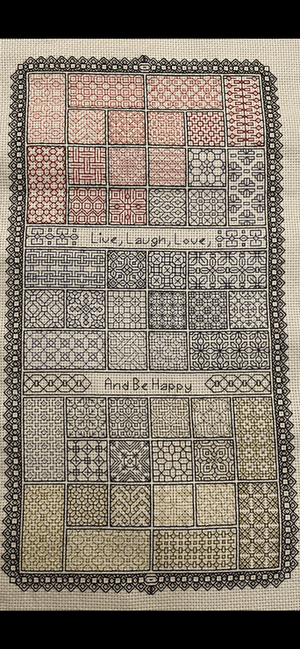 Live, Laugh, Love,
And Be Happy